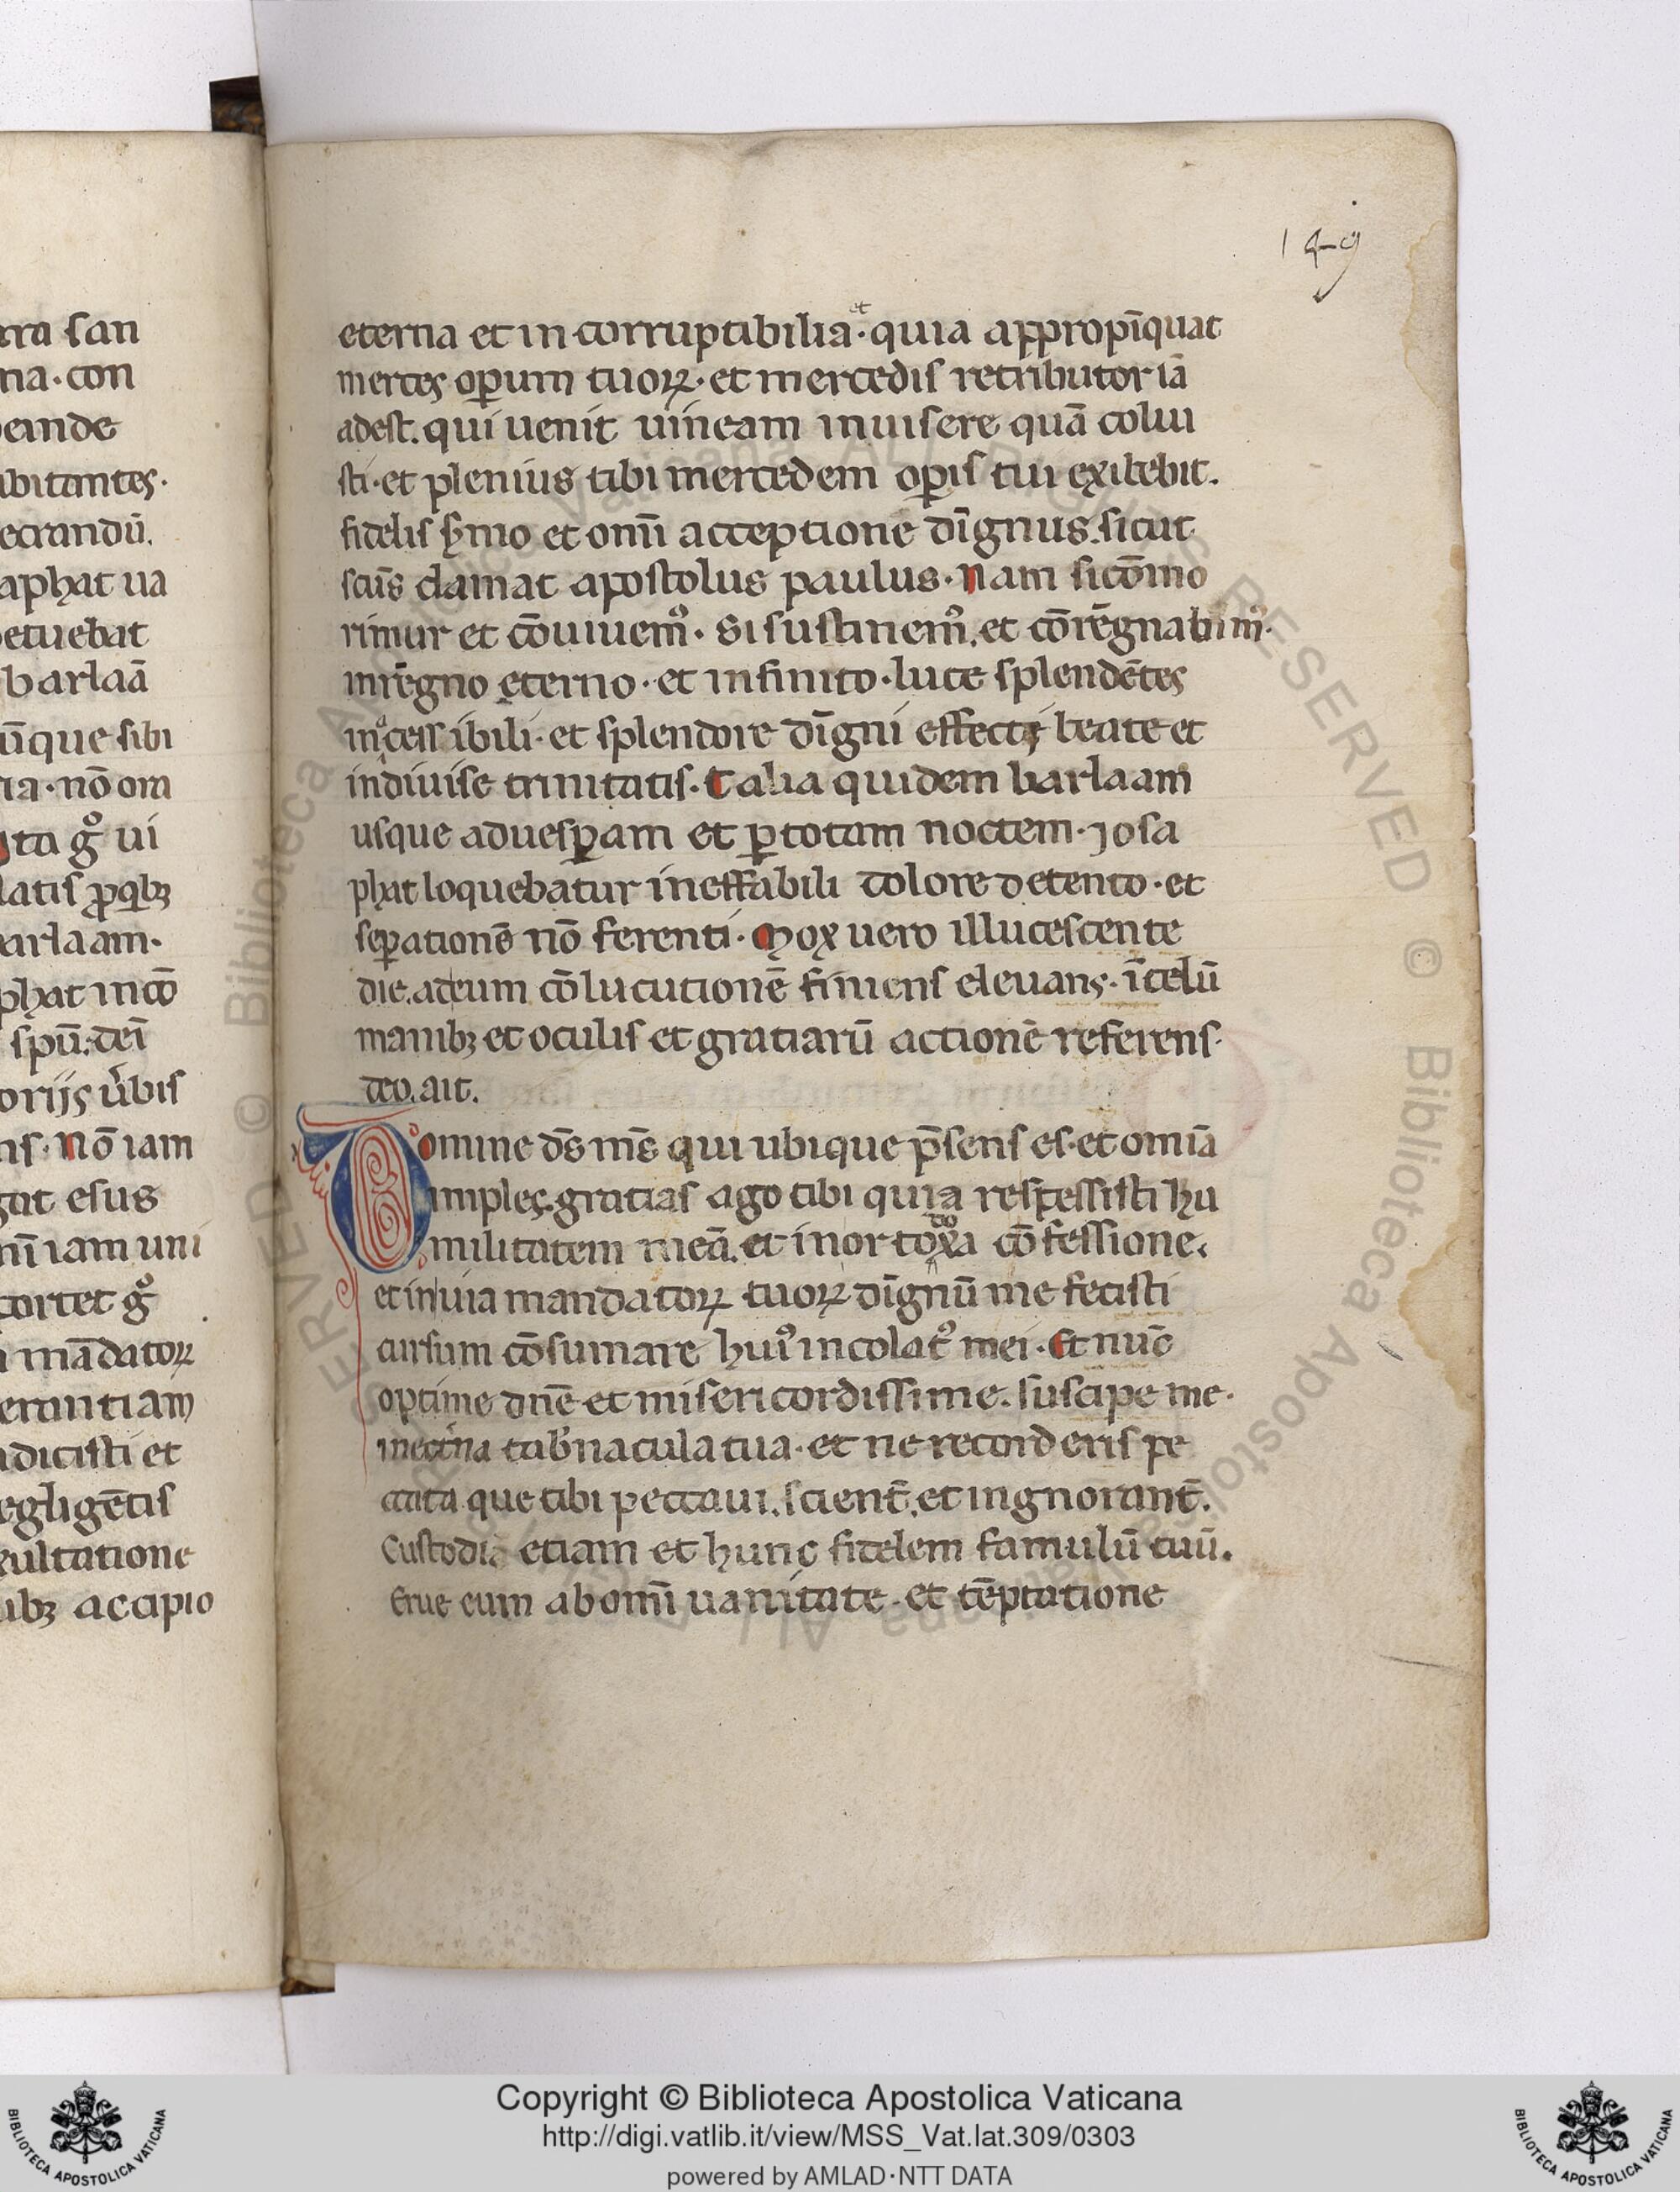 149
ara san
na·con
peinde
abitantes·
ecrandū.
aphat ua
petuebat
barlaā
ūque sibi
ria·nō om
ita gͦ ui
latis ꝓqͥbꝫ
barlaam·
phat incō
spū. dei
oriis ūbis
ns·Nō iam
gat esus
nī iam uni
portet gͦ
mādatoꝝ
erantiam
adicisti et
egligētis
xultatione
ibꝫ accipio
eterna et incorruptibilia·et quia appropīquat
merces oꝑum tuoꝝ·et mercedis retributor iā
adest. qui uenit uineam inuisere quā colui
sti·et plenius tibi mercedem oꝑis tui exibebit.
fidelis ẜmo et omī acceptione dīgnus. sicut
scūs clamat apostolus paulus·Nam si cōmo
rimur et cōuiuemꝰ· Si sustinemꝰ. et cōrēgnabimꝰ·
in rēgno eterno·et infinito·luce splendētes
inacessibili·et splendore dīgni effecti beate et
indiuise trinitatis. Talia quidem barlaam
usque aduesꝑam et ꝑ totam noctem·iosa
phat loquebatur ineffabili dolore detento·et
seꝑationē nō ferenti· Mox uero illucescente
die. ad eum cōlucutionē finiens eleuans·ī celū
manibꝫ et oculis et gratiarū actionē referens·
deo. ait.
Domine d̄s m̄s qui ubique p̄sens es·et omīa
imples. gratias ago tibi quia respexisti hu
militatem meā. et in ortodoxa cōfessione.
et in uia mandatoꝝ tuoꝝ dīgnū me fecisti
cursum cōsumare huiꝰ incolatꝰ mei·Et nūc
optime dn̄e et misericordissime. suscipe me·
in eterna tab̄nacula tua·et ne recorderis pe
ccata que tibi peccaui. scient̄. et ingnorant̄.
Custodi etiam et hunc fidelem famulū tuū.
Erue eum ab omī uanitate·et tēptatione
Copyright © Biblioteca Apostolica Vaticana
http://digi.vatlib.it/view/MSS_Vat.lat.309/0303
powered by AMLAD·NTT DATA
BIBLIOTECA APOSTOLICA VATICANA
BIBLIOTECA APOSTOLICA VATICANA